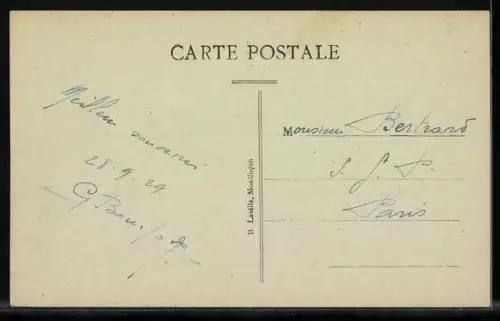 CARTE POSTALE
Meilleur souvenir
28.9.29
B. Laville, Montluçon
Monsieur Bertrand
Paris